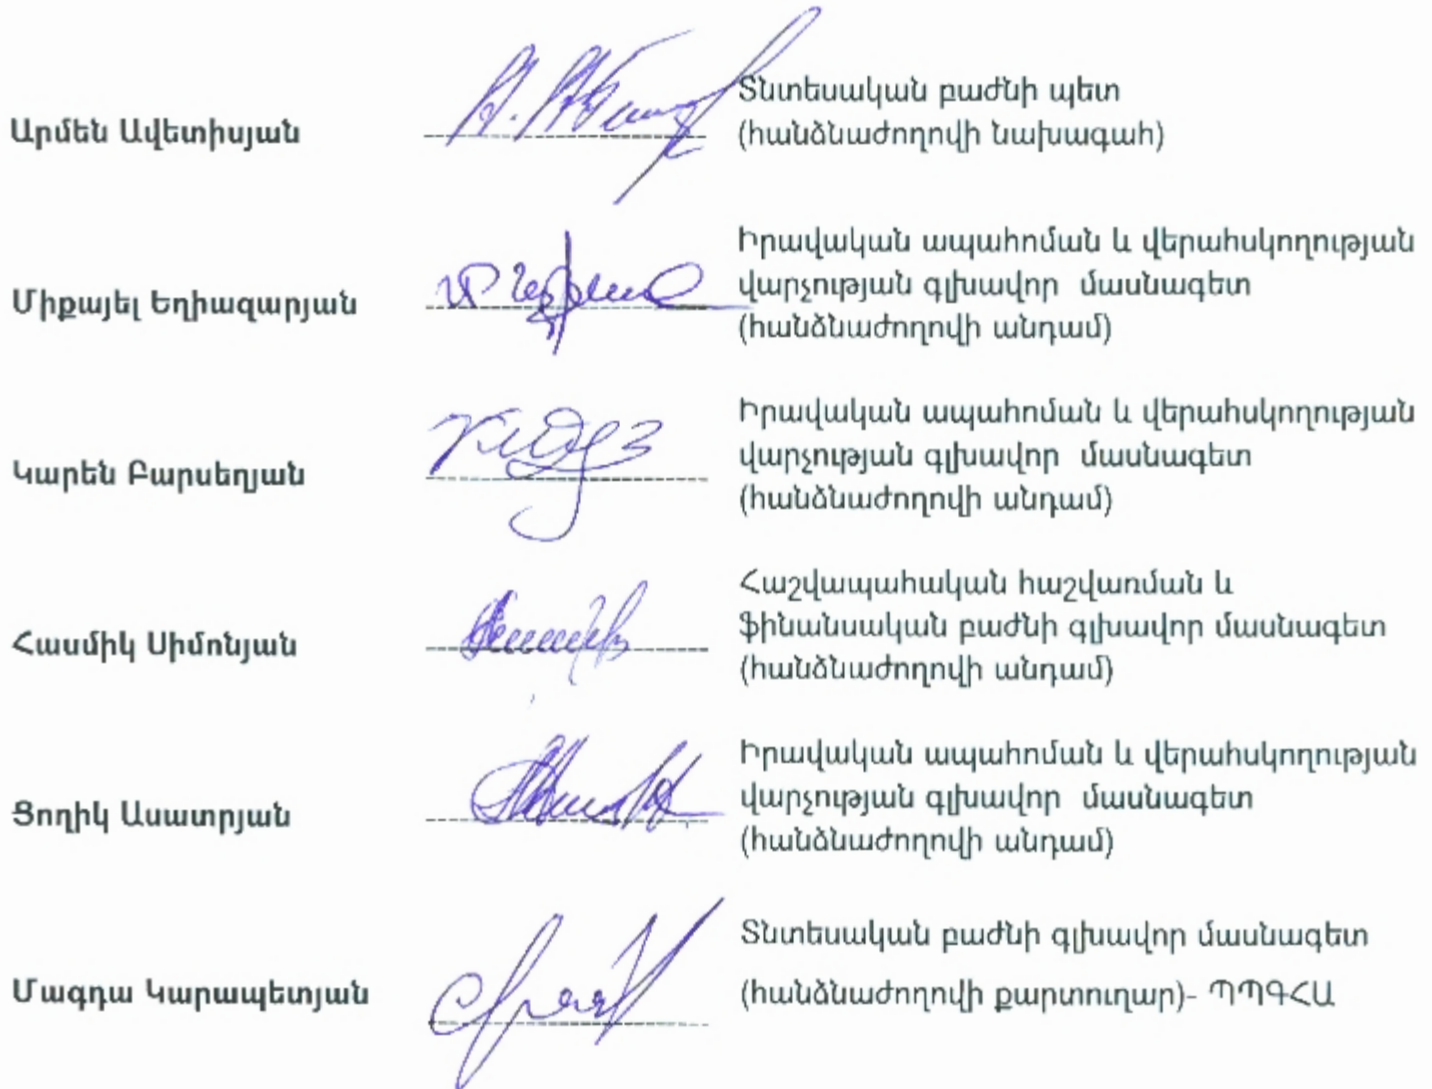 Արմեն Ավետիսյան
Տնտեսական բաժնի պետ
(հանձնաժողովի նախագահ)
Միքայել Եղիազարյան
Իրավական ապահոման և վերահսկողության
վարչության գլխավոր մասնագետ
(հանձնաժողովի անդամ)
Կարեն Բարսեղյան
Իրավական ապահոման և վերահսկողության
վարչության գլխավոր մասնագետ
(հանձնաժողովի անդամ)
Հասմիկ Սիմոնյան
Հաշվապահական հաշվառման և
ֆինանսական բաժնի գլխավոր մասնագետ
(հանձնաժողովի անդամ)
Ցողիկ Ասատրյան
Իրավական ապահոման և վերահսկողության
վարչության գլխավոր մասնագետ
(հանձնաժողովի անդամ)
Մագդա Կարապետյան
Տնտեսական բաժնի գլխավոր մասնագետ
(հանձնաժողովի քարտուղար)- ՊՊԳՀԱ